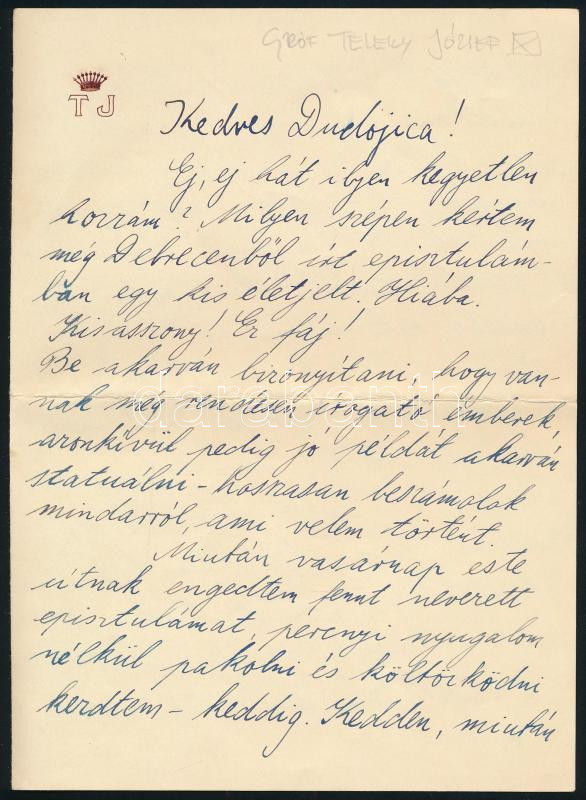 GRÓF TELEKY JÓZSEF
T J
Kedves Dudójica!
Ej, ej hát ilyen kegyetlen
hozzám? Milyen szépen kértem
még Debrecenből írt episztulám-
ban egy kis életjelt. Hiába.
Kisasszony! Ez fáj!
Be akarván bizonyítani, hogy van-
nak még rendesen irogató emberek,
azonkívül pedig jó példát akarván
statuálni - hosszasan beszámolok
mindarról, ami velem történt.
Miután vasárnap este
útnak engedtem fennt nevezett
episztulámat, percnyi nyugalom
nélkül pakolni és költözködni
kezdtem - keddig. Kedden, miután
darabanth